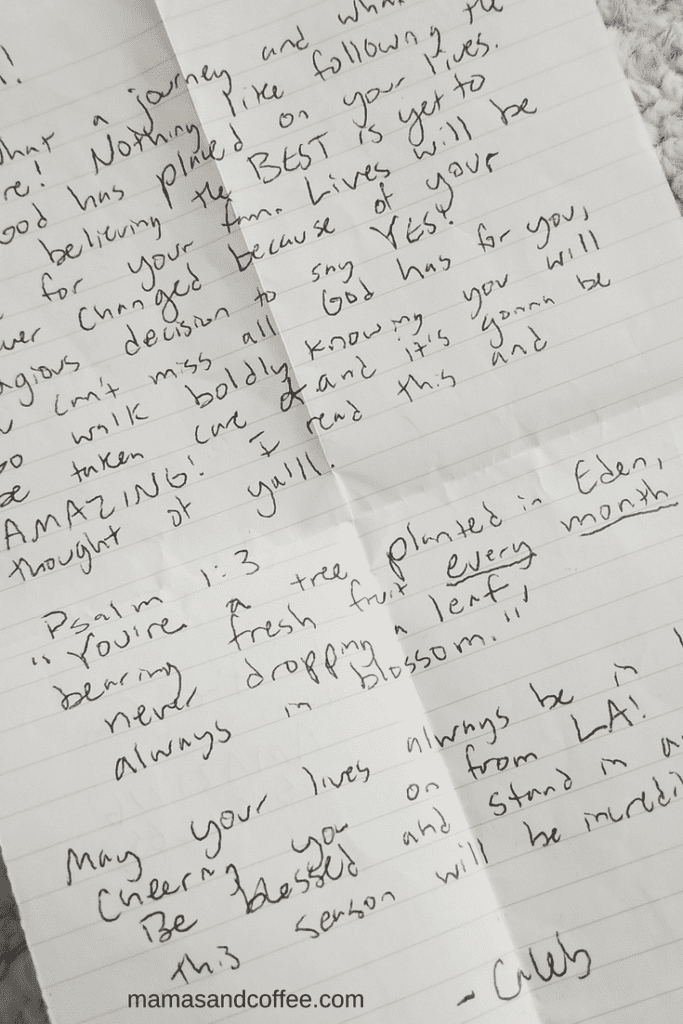 !
hat a journey and what
re! Nothing like following the
God has placed on your lives.
believing the BEST is yet to
for your fam. Lives will be
ver changed because of your
agious decision to say YES!
can't miss all God has for you,
walk boldly knowing you will
be taken care of and it's gonna be
AMAZING! I read this and
thought of ya'll.
Psalm 1:3
"You're a tree planted in Eden,
bearing fresh fruit every month
never dropping a leaf,
always in blossom."
May your lives always be in
Cheering you on from LA!
Be blessed and stand in a
this season will be incredi
- Caleb
mamasandcoffee.com